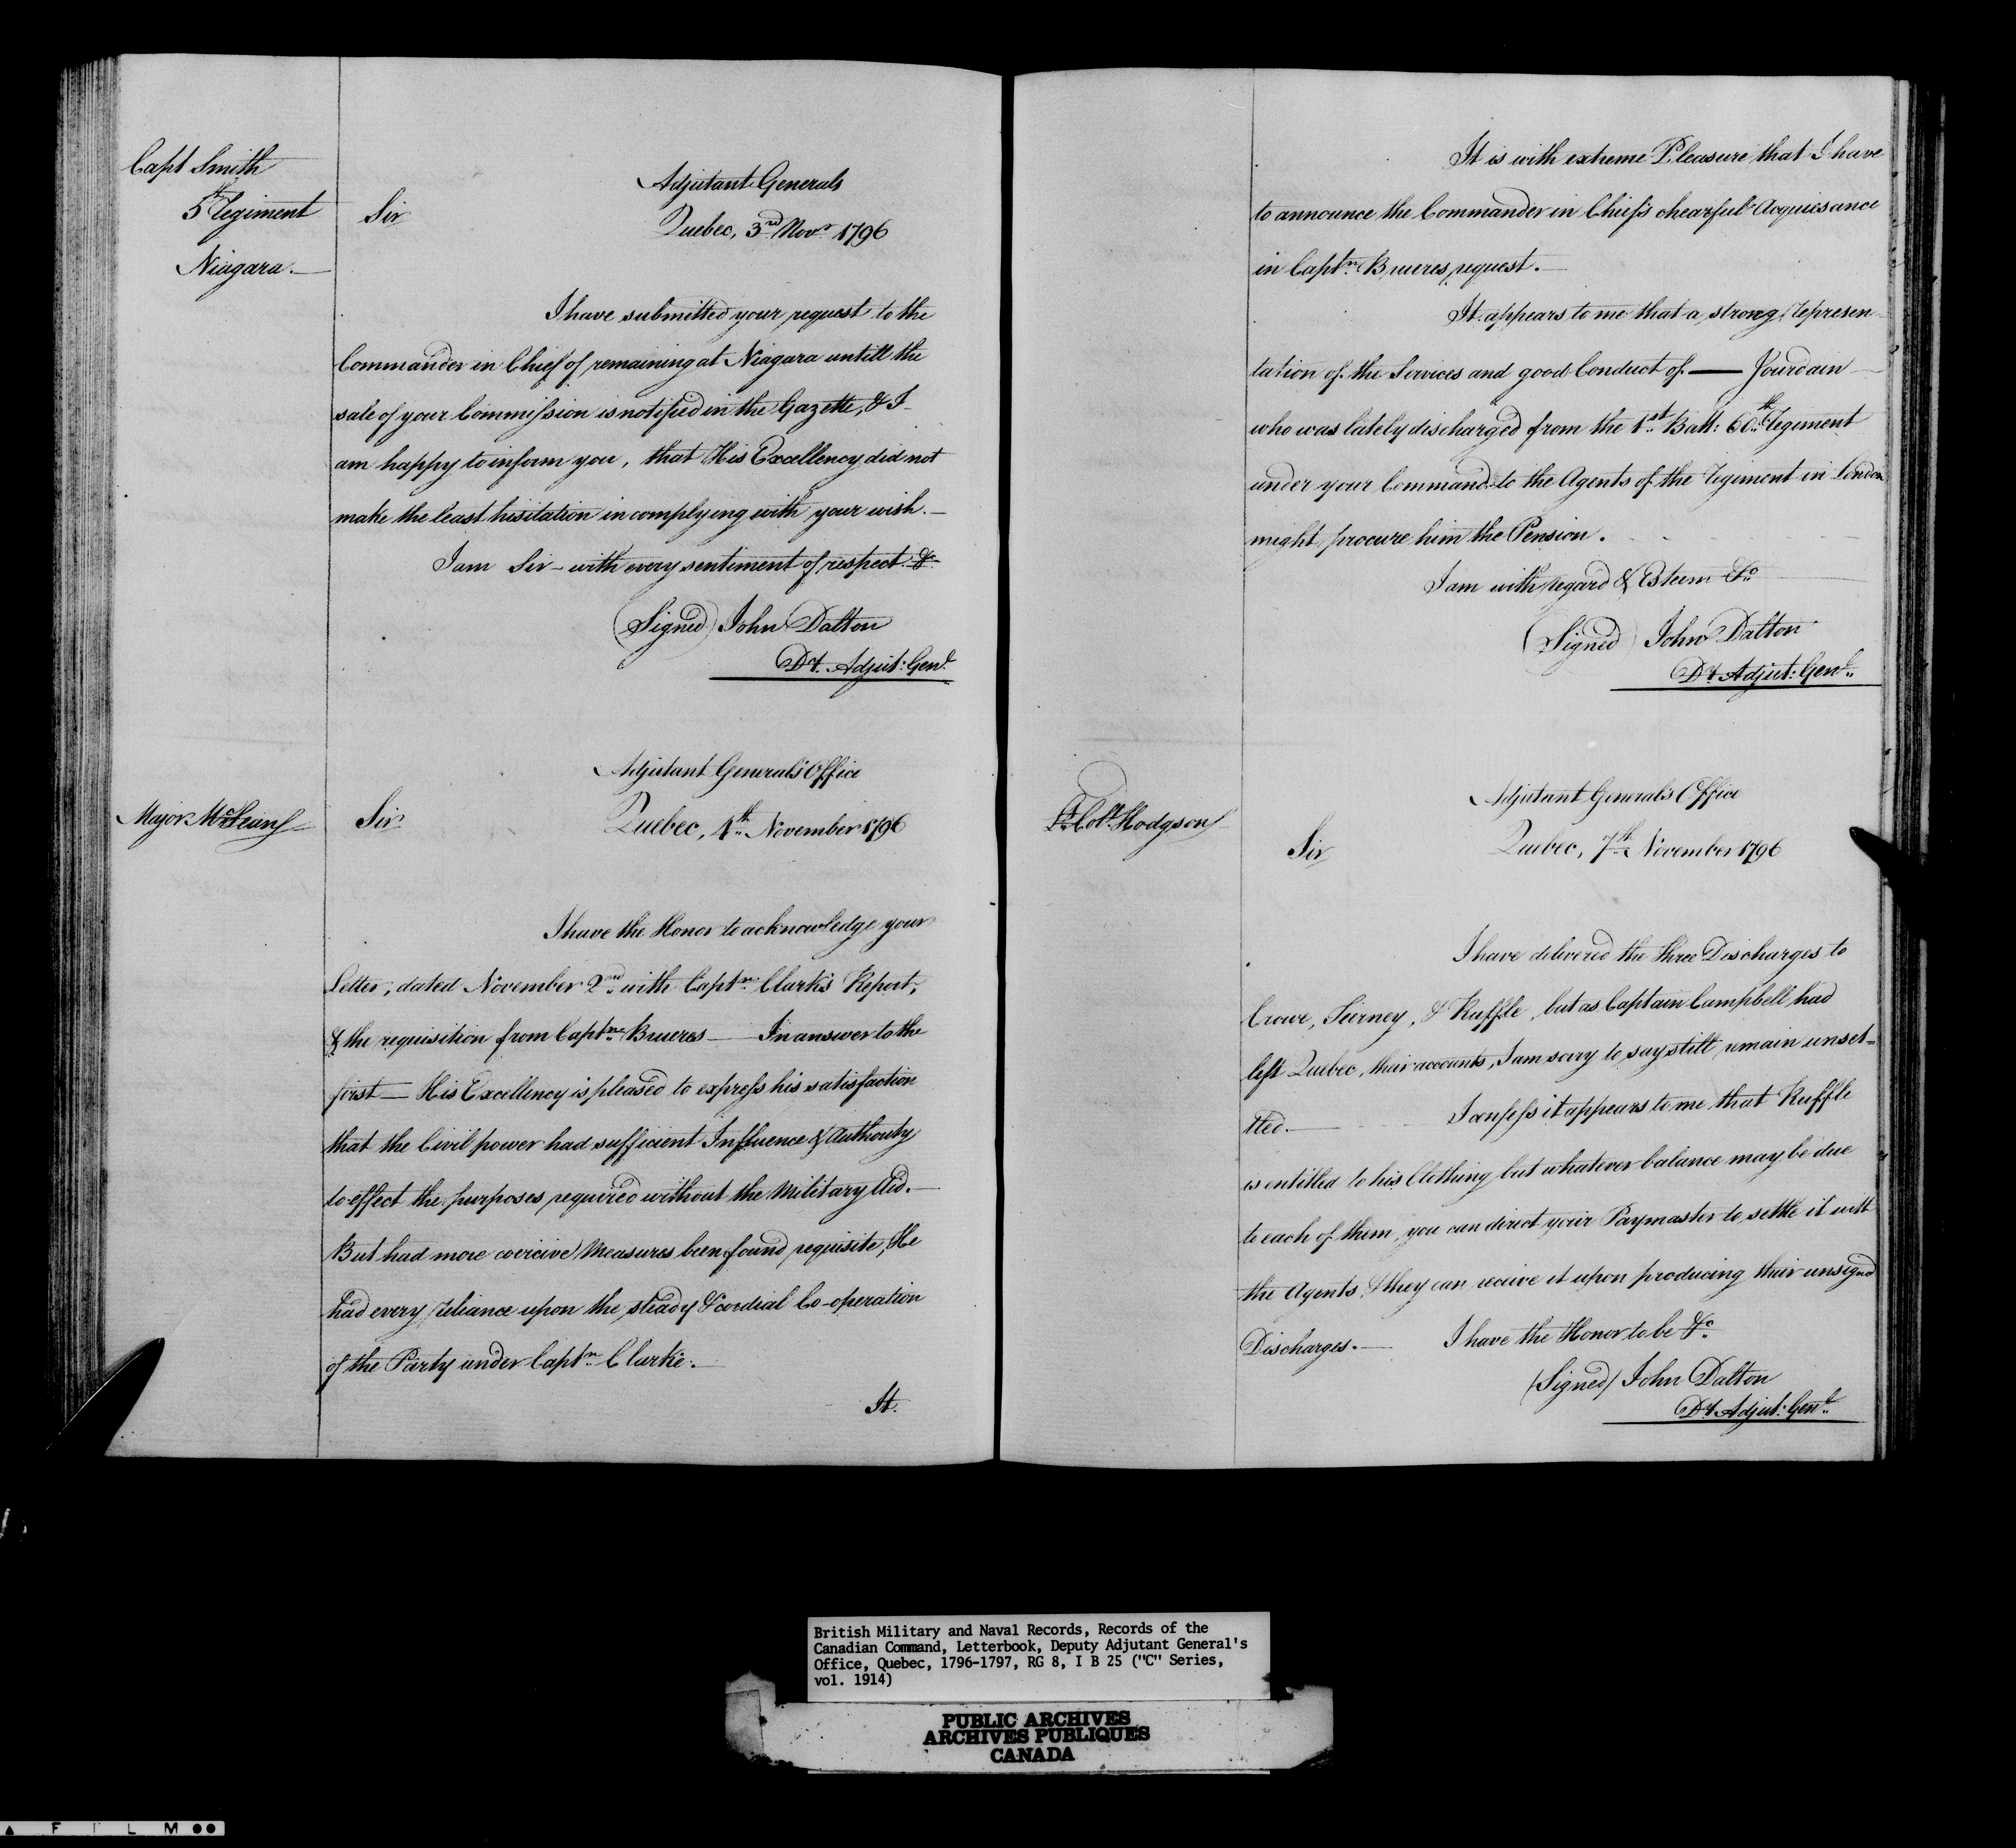 Capt Smith
5th Regiment
Niagara.—
Adjutant Generals
Sir Quebec, 3rd Novr 1796
I have submitted your request to the
Commander in Chief of remaining at Niagara untill the
sale of your Commission is notified in the Gazette, & I
am happy to inform you, that His Excellency did not
make the least hisitation in complying with your wish.—
I am Sir – with every sentiment of respect &c
(Signed) John Dalton
Dy. Adjut: Genl.
Adjutant General's Office
Major McLean
Sir Quebec, 4th November 1796
I have the Honor to acknowledge your
Letter, dated November 2nd with Captn Clark's Report,
& the requisition from Captn Brueres — In answer to the
first — His Excellency is pleased to express his satisfaction
that the Civil power had sufficient Influence & Authority
to effect the purposes required without the Military Aid.—
But had more coercive Measures been found requisite, He
had every reliance upon the steady & cordial Co-operation
of the Party under Captn Clarke.—
It
It is with extreme Pleasure that I have
to announce the Commander in Chief's chearful Acquiesance
in Captn Brueres request.—
It appears to me that a strong represen
tation of the Services and good Conduct of — Jourdain
who was lately discharged from the 1st Batt: 60th Regiment
under your Command to the Agents of the Regiment in London
might procure him the Pension.
I am with regard & Esteem &c
(Signed) John Dalton
Dy Adjut: Genl.
Adjutant General's Office
Lt. Col. Hodgson
Sir Quebec, 7th November 1796
I have delivered the three Discharges to
Crowe, & Ruffle, but as Captain Campbell had
left Quebec, their accounts, I am sorry to say still remain unset=
tled.— I confess it appears to me that Ruffle
is entitled to his Clothing but whatever balance may be due
to each of them, you can direct your Paymaster to settle it with
the Agents, & they can receive it upon producing their unsigned
Discharges.— I have the Honor to be &c
(Signed) John Dalton
Dy Adjut: Genl.
British Military and Naval Records, Records of the
Canadian Command, Letterbook, Deputy Adjutant General's
Office, Quebec, 1796-1797, RG 8, I B 25 ("C" Series,
vol. 1914)
PUBLIC ARCHIVES
ARCHIVES PUBLIQUES
CANADA
F I L M